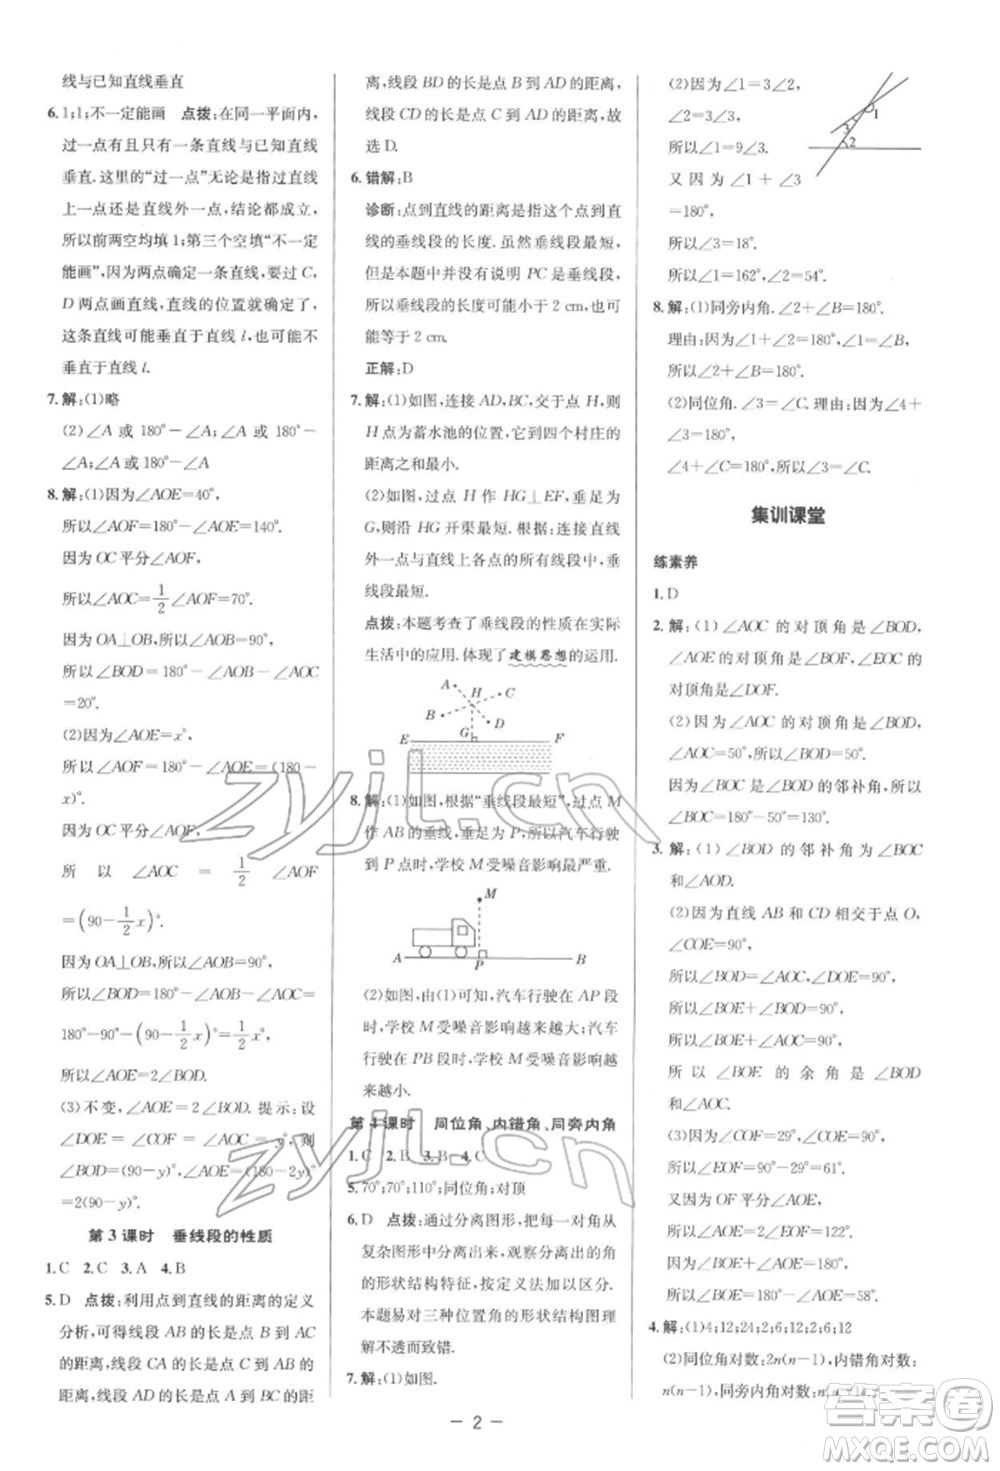 线与已知直线垂直
6. 1;1;不一定能画 点拨:在同一平面内,
过一点有且只有一条直线与已知直线
垂直.这里的“过一点”无论是指过直线
上一点还是直线外一点,结论都成立,
所以前两空均填1;第三个空填“不一
定能画”,因为两点确定一条直线,过C,
D两点画直线,直线的位置就确定了,
这条直线可能垂直于直线l,也可能不
垂直于直线l.
7. 解:(1)略
(2)∠A 或 180°-∠A;∠A 或 180°-
∠A;∠A 或 180°-∠A
8. 解:(1)因为∠AOE=40°,
所以∠AOF=180°-∠AOE=140°.
因为 OC 平分∠AOF,
所以∠AOC=1/2∠AOF=70°.
因为 OA⊥OB,所以∠AOB=90°,
所以∠BOD=180°-∠AOB-∠AOC
=20°.
(2)因为∠AOE=x°,
所以∠AOF=180°-∠AOE=(180-
x)°.
因为 OC 平分∠AOF,
所以∠AOC=1/2∠AOF
=(90-1/2x)°.
因为 OA⊥OB,所以∠AOB=90°,
所以∠BOD=180°-∠AOB-∠AOC=
180°-90°-(90-1/2x)°=(1/2x)°.
所以∠AOE=2∠BOD.
(3)不变,∠AOE=2∠BOD.提示:设
∠DOE=∠COF=∠AOC=y°,则
∠BOD=(90-y)°,∠AOE=(180-2y)°=
2(90-y)°.
第3课时 垂线段的性质
1. C 2. C 3. A 4. B
5. D 点拨:利用点到直线的距离的定义
分析,可得线段 AB 的长是点 B 到 AC
的距离,线段 CA 的长是点 C 到 AB
的距离,线段 AD 的长是点 A 到 BC 的距
离,线段 BD 的长是点 B 到 AD 的距离,
线段 CD 的长是点 C 到 AD 的距离,故
选 D.
6. 错解:B
诊断:点到直线的距离是指这个点到直
线的垂线段的长度.虽然垂线段最短,
但是本题中并没有说明 PC 是垂线段,
所以垂线段的长度可能小于 2 cm,也可
能等于 2 cm.
正解:D
7. 解:(1)如图,连接 AD,BC,交于点 H,则
H 点为蓄水池的位置,它到四个村庄的
距离之和最小.
(2)如图,过点 H 作 HG⊥EF,垂足为
G,则沿 HG 开渠最短.根据:连接直线
外一点与直线上各点的所有线段中,垂
线段最短.
点拨:本题考查了垂线段的性质在实际
生活中的应用.体现了建模思想的运用.
A H C
B D
E G F
8. 解:(1)如图,根据“垂线段最短”,过点 M
作 AB 的垂线,垂足为 P,所以汽车行驶
到 P 点时,学校 M 受噪音影响最严重.
M
A P B
(2)如图,由(1)可知,汽车行驶在 AP 段
时,学校 M 受噪音影响越来越大;汽车
行驶在 PB 段时,学校 M 受噪音影响越
来越小.
第4课时 同位角、内错角、同旁内角
1. C 2. B 3. B 4. C
5. 70°;70°;110°;同位角;对顶
6. D 点拨:通过分离图形,把每一对角从
复杂图形中分离出来,观察分离出的角
的形状结构特征,按定义加以区分.
本题易对三种位置角的形状结构图理
解不透而致错.
7. 解:(1)如图.
(2)因为∠1=3∠2,
∠2=3∠3,
所以∠1=9∠3.
又因为∠1+∠3
=180°,
所以∠3=18°.
所以∠1=162°,∠2=54°.
1
3
2
8. 解:(1)同旁内角.∠2+∠B=180°.
理由:因为∠1+∠2=180°,∠1=∠B,
所以∠2+∠B=180°.
(2)同位角.∠3=∠C.理由:因为∠4+
∠3=180°,
∠4+∠C=180°,所以∠3=∠C.
集训课堂
练素养
1. D
2. 解:(1)∠AOC 的对顶角是∠BOD,
∠AOE 的对顶角是∠BOF,∠EOC 的
对顶角是∠DOF.
(2)因为∠AOC 的对顶角是∠BOD,
∠AOC=50°,所以∠BOD=50°.
因为∠BOC 是∠BOD 的邻补角,所以
∠BOC=180°-50°=130°.
3. 解:(1)∠BOD 的邻补角为∠BOC
和∠AOD.
(2)因为直线 AB 和 CD 相交于点 O,
∠COE=90°,
所以∠BOD=∠AOC,∠DOE=90°.
所以∠BOE+∠BOD=90°,
所以∠BOE+∠AOC=90°.
所以∠BOE 的余角是∠BOD
和∠AOC.
(3)因为∠COF=29°,∠COE=90°,
所以∠EOF=90°-29°=61°.
又因为 OF 平分∠AOE,
所以∠AOE=2∠EOF=122°.
因为∠BOE+∠AOE=180°,
所以∠BOE=180°-∠AOE=58°.
4. 解:(1)4;12;24;2;6;12;2;6;12
(2)同位角对数:2n(n-1),内错角对数:
n(n-1),同旁内角对数:n(n-1).
— 2 —
zyjl.cn
zyjl.cn
答案圈
MXQE.COM